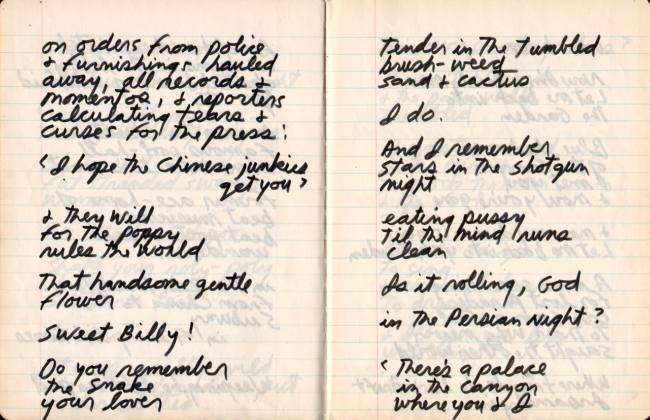 on orders from police
& furnishings hauled
away, all records &
momentos, & reporters
calculating tears &
curses for the press:
'I hope the Chinese junkies
get you'
& they will
for the poppy
rules the world
That handsome gentle
flower
Sweet Billy!
Do you remember
the snake
your lover
tender in the tumbled
brush-weed
sand & cactus
I do.
And I remember
stars in the shotgun
night
eating pussy
til the mind runs
clean
Is it rolling, God
in the Persian Night?
'There's a palace
in the canyon
where you & I